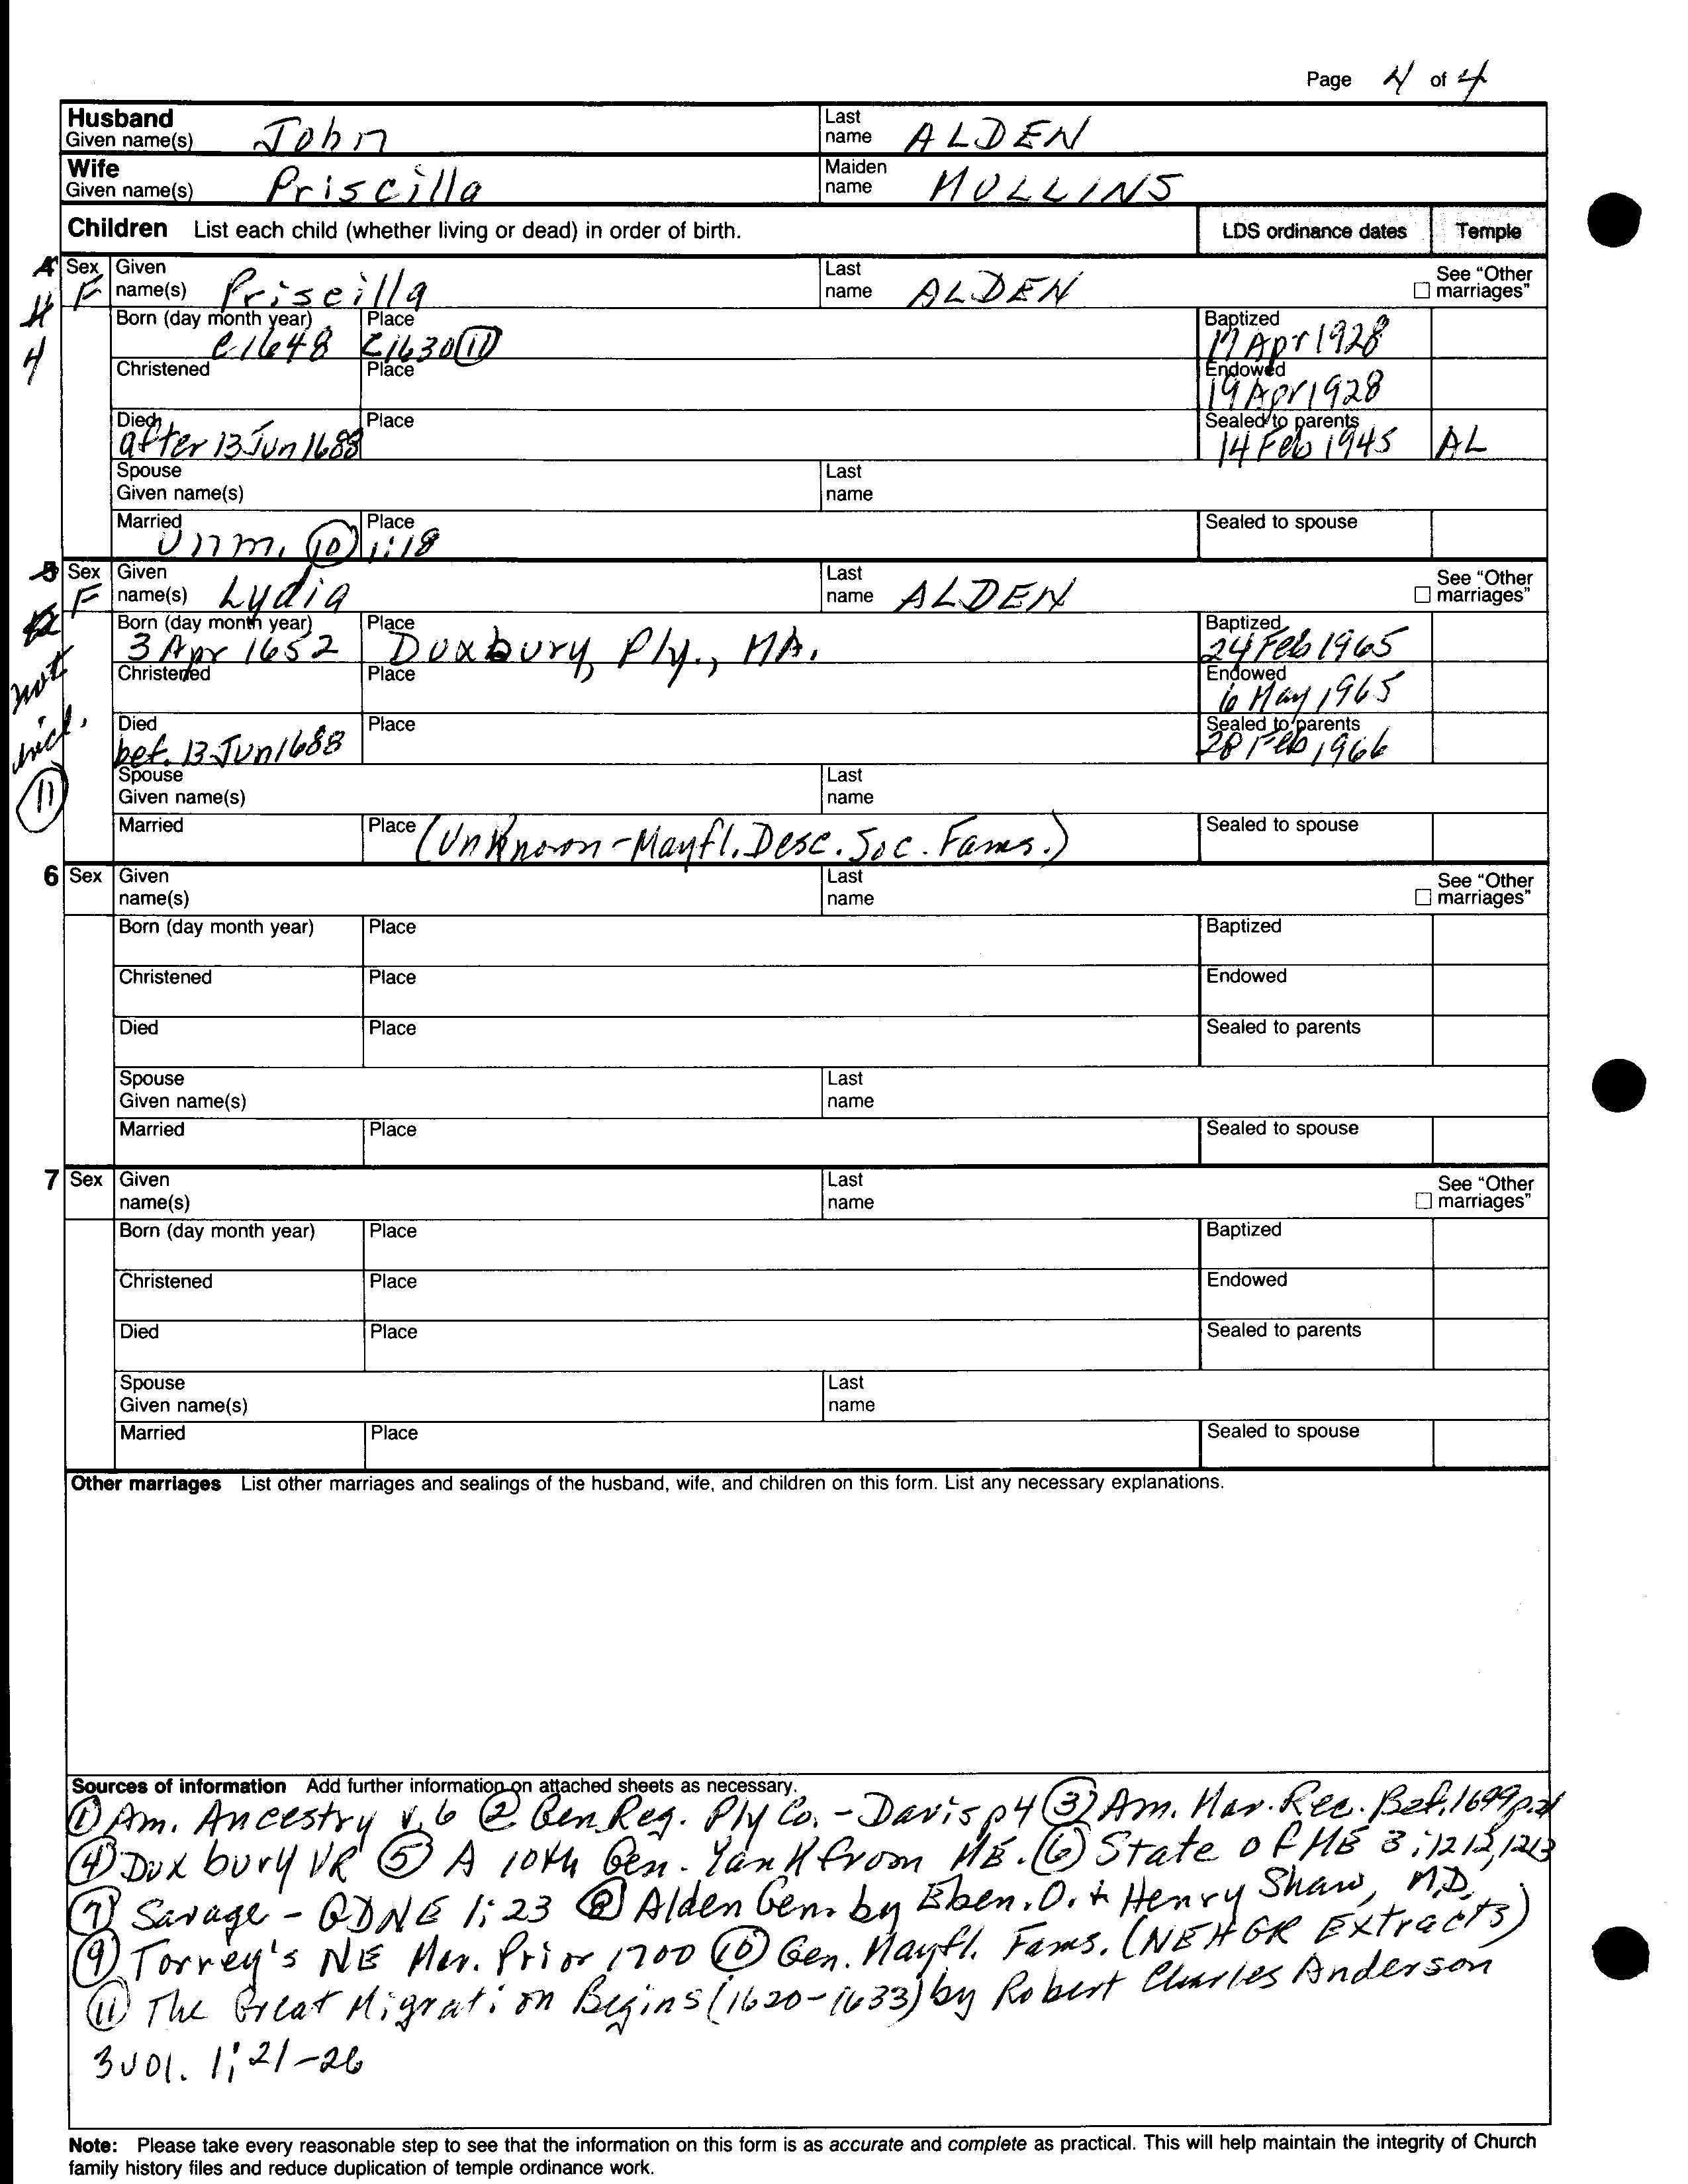 Page 4 of 4
Husband
Given name(s) John Last name ALDEN
Wife
Given name(s) Priscilla Maiden name MULLINS
Children List each child (whether living or dead) in order of birth. LDS ordinance dates Temple
4 Sex F Given name(s) Priscilla Last name ALDEN See "Other marriages"
4
4
Born (day month year) c1648 Place c1630 (11) Baptized 17 Apr 1928
Christened Place Endowed 19 Apr 1928
Died after 13 Jun 1688 Place Sealed to parents 14 Feb 1945 AL
Spouse
Given name(s) Last name
Married Unm. (10) 1:18 Place Sealed to spouse
5 Sex F Given name(s) Lydia Last name ALDEN See "Other marriages"
not
incl.
(11)
Born (day month year) 3 Apr 1652 Place Duxbury, Ply., MA. Baptized 24 Feb 1965
Christened Place Endowed 6 May 1965
Died bef. 13 Jun 1688 Place Sealed to parents 28 Feb 1966
Spouse
Given name(s) Last name
Married Place (Unknown-Mayfl. Desc. Soc. Fams.) Sealed to spouse
6 Sex Given name(s) Last name See "Other marriages"
Born (day month year) Place Baptized
Christened Place Endowed
Died Place Sealed to parents
Spouse
Given name(s) Last name
Married Place Sealed to spouse
7 Sex Given name(s) Last name See "Other marriages"
Born (day month year) Place Baptized
Christened Place Endowed
Died Place Sealed to parents
Spouse
Given name(s) Last name
Married Place Sealed to spouse
Other marriages List other marriages and sealings of the husband, wife, and children on this form. List any necessary explanations.
Sources of information Add further information on attached sheets as necessary.
(1) Am. Ancestry v.6 (2) Gen. Reg. Ply Co. - Davis p4 (3) Am. Mar. Rec. Bef. 1699
(4) Duxbury VR (5) A 10th Gen. Yank from ME. (6) State of ME 3:1212,1213
(7) Savage - GDNE 1:23 (8) Alden Gen. by Eben. O. + Henry Shaw, M.D.
(9) Torrey's NE Mar. Prior 1700 (10) Gen. Mayfl. Fams. (NEHGR Extracts)
(11) The Great Migration Begins (1620-1633) by Robert Charles Anderson
3 vol. 1:21-26
Note: Please take every reasonable step to see that the information on this form is as accurate and complete as practical. This will help maintain the integrity of Church
family history files and reduce duplication of temple ordinance work.